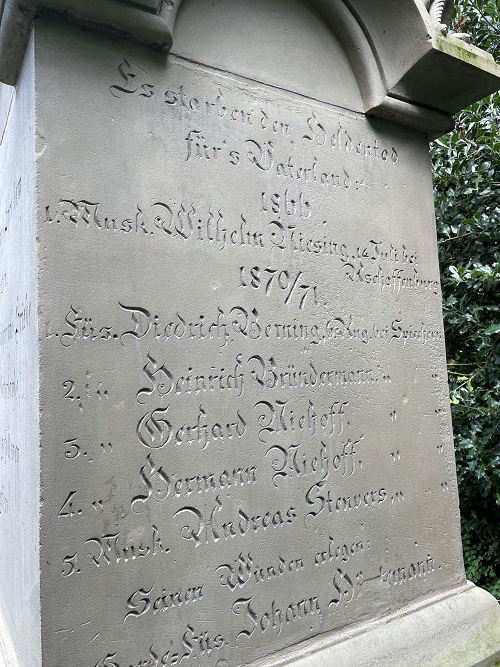 Es starben den Heldentod
für's Vaterland:
1866
1. Musk. Wilhelm Niesing, 14 Juli bei
Aschaffenburg
1870/71.
1. Füs. Diedrich Berning, 6 Aug. bei Spicheren
2. " Heinrich Bründermann, " "
3. " Gerhard Niehoff, " "
4. " Hermann Niehoff, " "
5. Musk. Andreas Stenvers, " "
Seinen Wunden erlegen:
Garde Füs. Johann